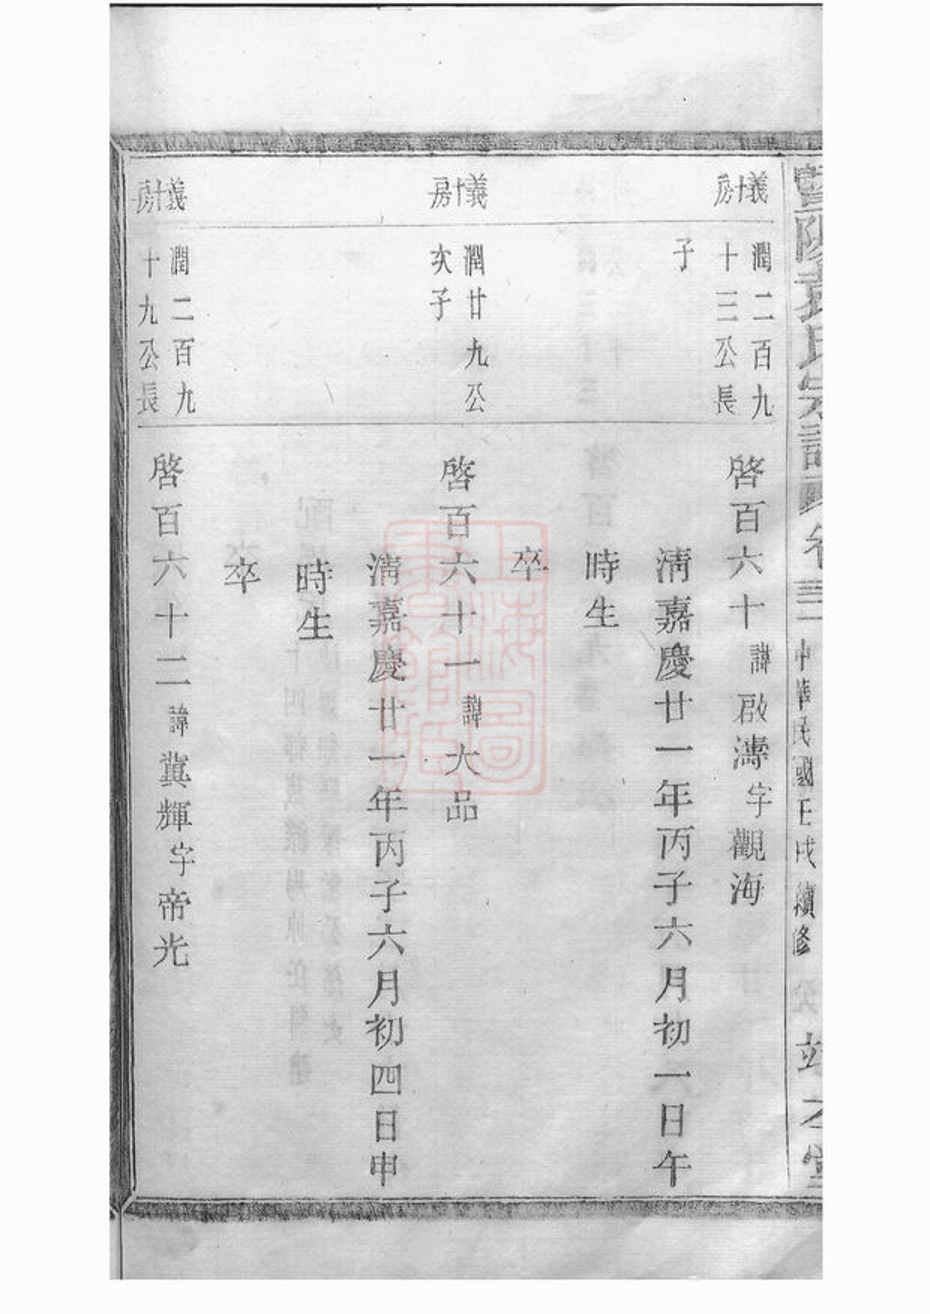 暨陽袁氏宗譜 卷三 中華民國壬戌續修
義十房
潤二百九
十三公長
子
啓百六十諱啟濤字觀海
淸嘉慶廿一年丙子六月初一日午
時生
卒
義十房
潤廿九公
次子
啓百六十一諱大品
淸嘉慶廿一年丙子六月初四日申
時生
卒
義十房
潤二百九
十九公長
啓百六十二諱冀輝字帝光
上海圖書館藏